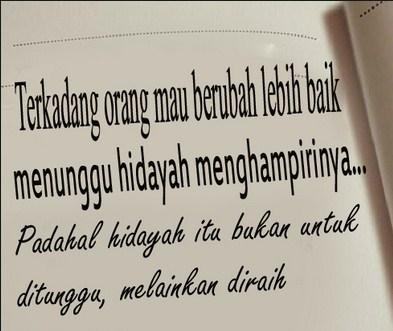 Terkadang orang mau berubah lebih baik
menunggu hidayah menghampirinya...
Padahal hidayah itu bukan untuk
ditunggu, melainkan diraih